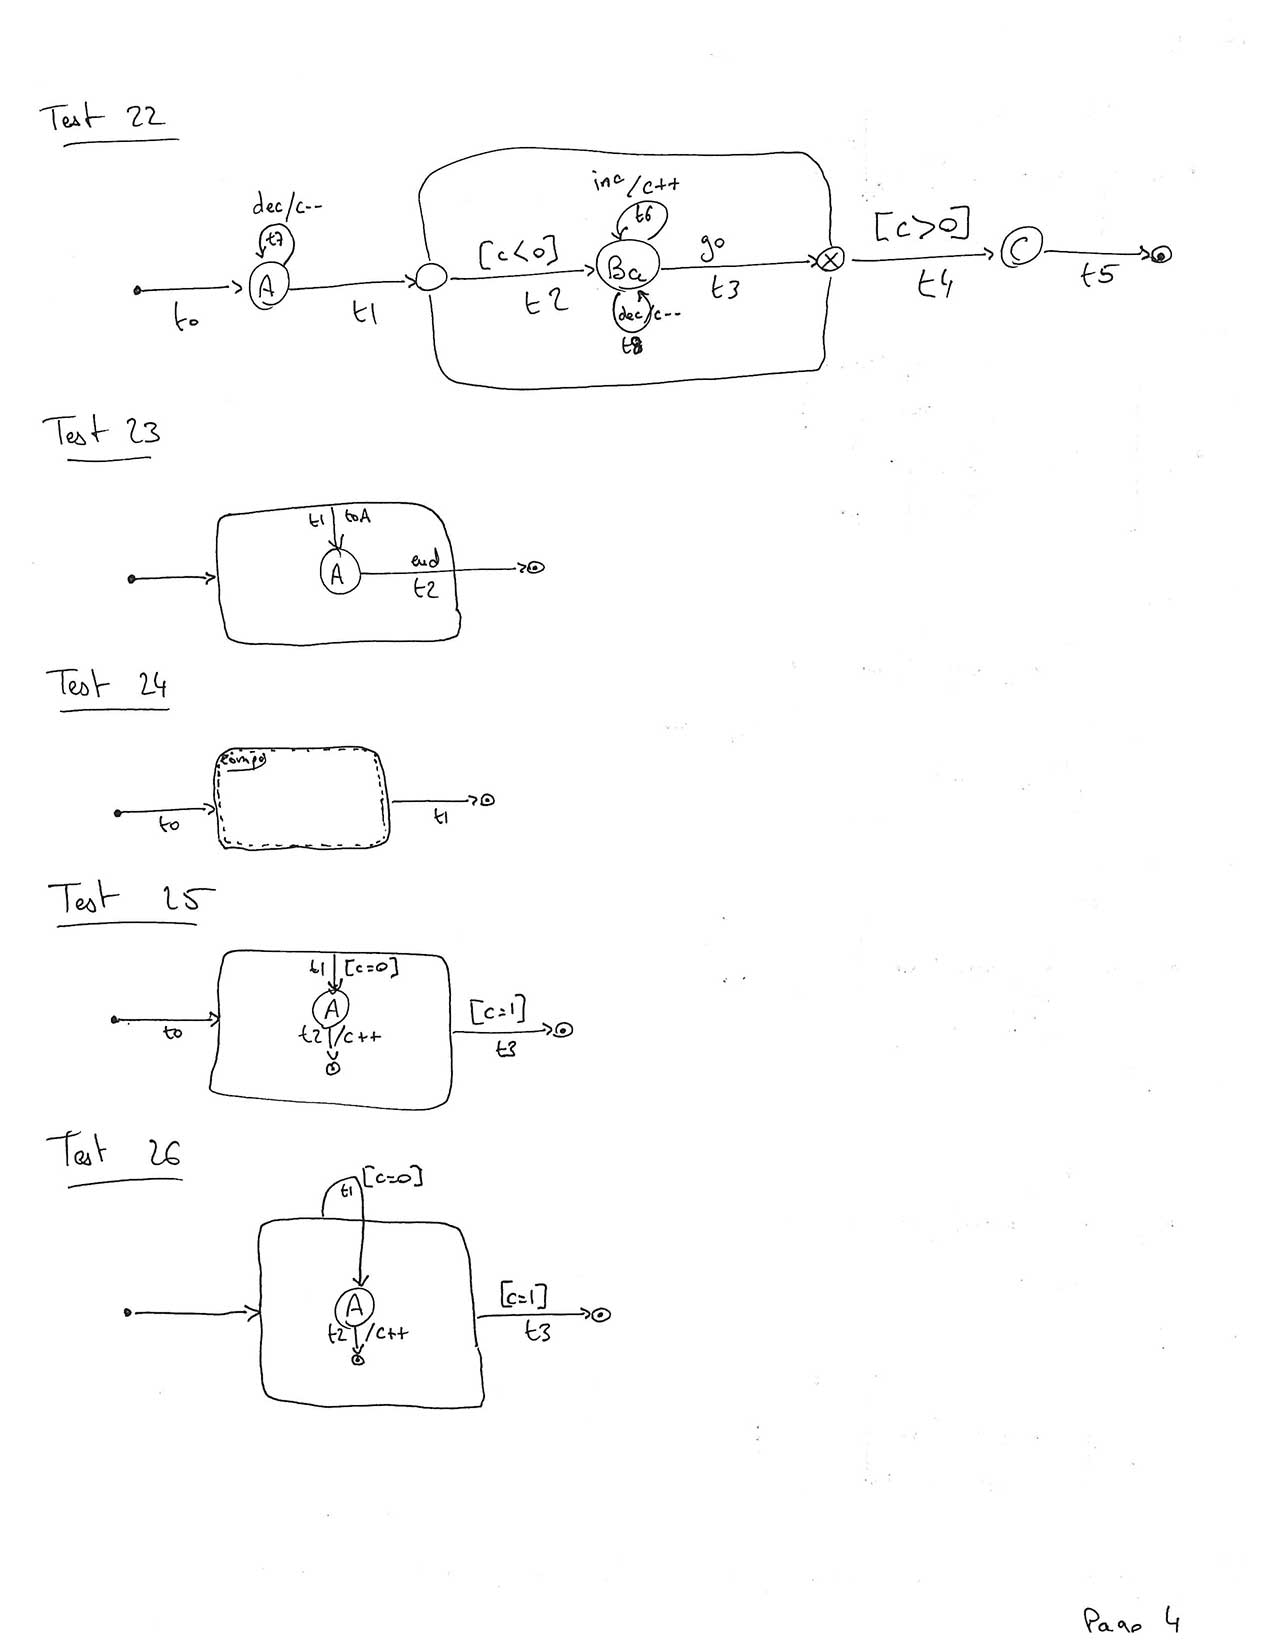 Test 22
dec/c--
t7
A
t0
t1
[c<0]
t2
inc/c++
t6
Ba
dec/c--
t8
go
t3
[c>0]
t4
C
t5
Test 23
t1 toA
A
end
t2
Test 24
compo
t0
t1
Test 25
t1 [c=0]
A
t2 /c++
t0
[c=1]
t3
Test 26
t1 [c=0]
A
t2 /c++
[c=1]
t3
Page 4